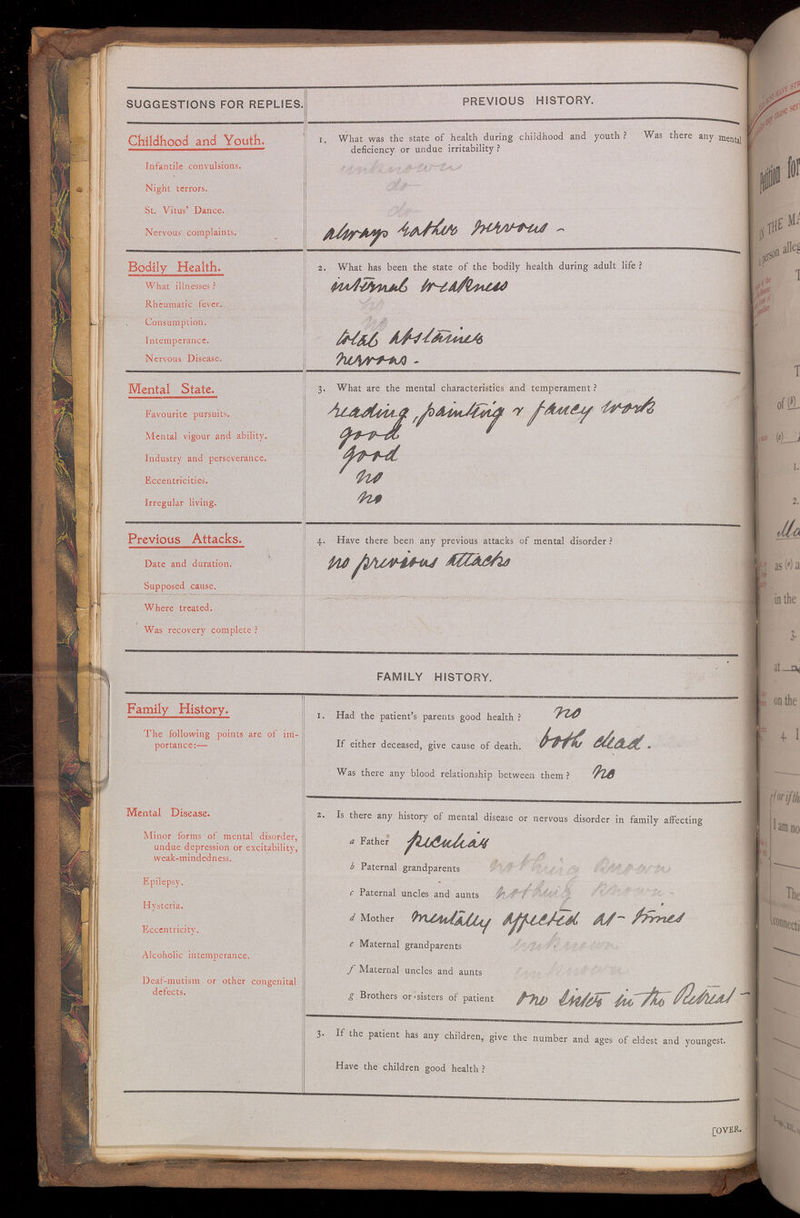 SUGGESTIONS FOR REPLIES.
PREVIOUS HISTORY.
Childhood and Youth.
1. What was the state of health during childhood and youth? Was there any mental
deficiency or undue irritability?
Infantile convulsions.
unknown
Night terrors.
do
St. Vitus' Dance.
do
Nervous complaints.
Always rather nervous -
Bodily Health.
2. What has been the state of the bodily health during adult life?
What illnesses?
internal weakness
Rheumatic fever.
no
Consumption.
no
Intemperance.
total abstainer
Nervous Disease.
nervous -
Mental State.
3. What are the mental characteristics and temperament?
Favourite pursuits.
reading, painting & fancy work
Mental vigour and ability.
good
Industry and perseverance.
good
Eccentricities.
no
Irregular living.
no
Previous Attacks.
4. Have there been any previous attacks of mental disorder?
Date and duration.
no previous attacks
Supposed cause.
Where treated.
Was recovery complete?
FAMILY HISTORY.
Family History.
1. Had the patient's parents good health? no
The following points are of im-
portance:—
If either deceased, give cause of death. both dead.
Was there any blood relationship between them? no
Mental Disease.
2. Is there any history of mental disease or nervous disorder in family affecting
Minor forms of mental disorder,
undue depression or excitability,
weak-mindedness.
a Father peculiar
b Paternal grandparents nothing known
Epilepsy.
c Paternal uncles and aunts nothing known -
Hysteria.
d Mother mentally affected at times
Eccentricity.
e Maternal grandparents unknown
Alcoholic intemperance.
f Maternal uncles and aunts unknown
Deaf-mutism or other congenital
defects.
g Brothers or sisters of patient one sister in the Retreat -
3. If the patient has any children, give the number and ages of eldest and youngest.
Have the children good health?
[OVER.
Petition for
IN THE MA
a person alleg
of (b)
1.
2.
as (e) a
in the
3.
at
on the
4. I
I am no
The
connecti